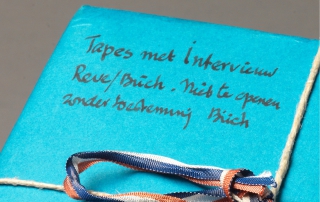 Tapes met Interview
Reve/Büch. Niet te openen
zonder toestemming Büch